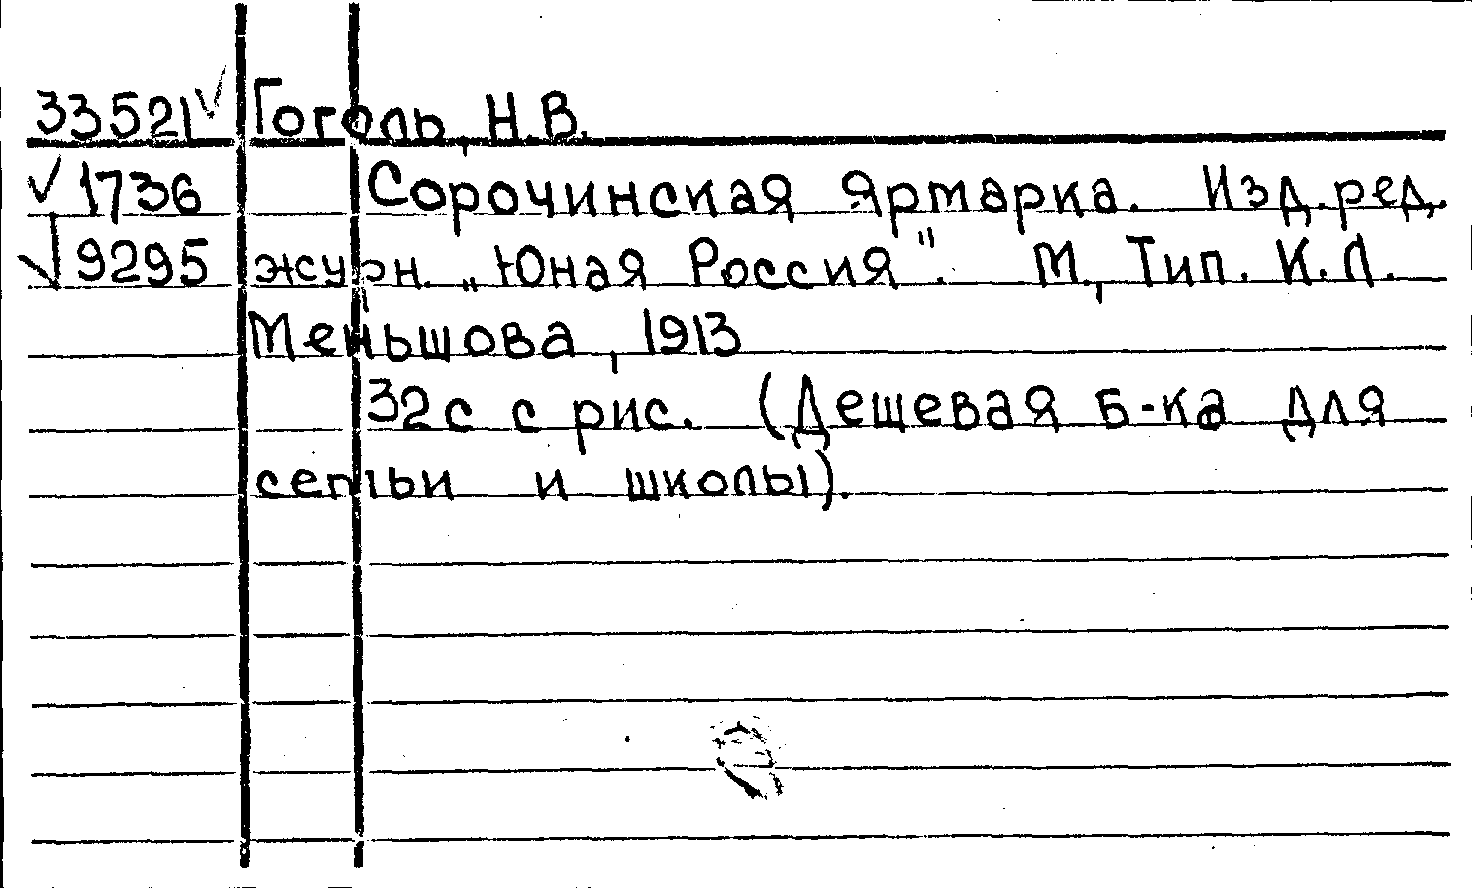 33521✓ Гоголь, Н.В.
✓ 1736 Сорочинская Ярмарка. Изд. ред.
✓ 9295 журн. „Юная Россия". М., Тип. К.Л.
Меньшова, 1913
32с с рис. (Дешевая б-ка для
семьи и школы).